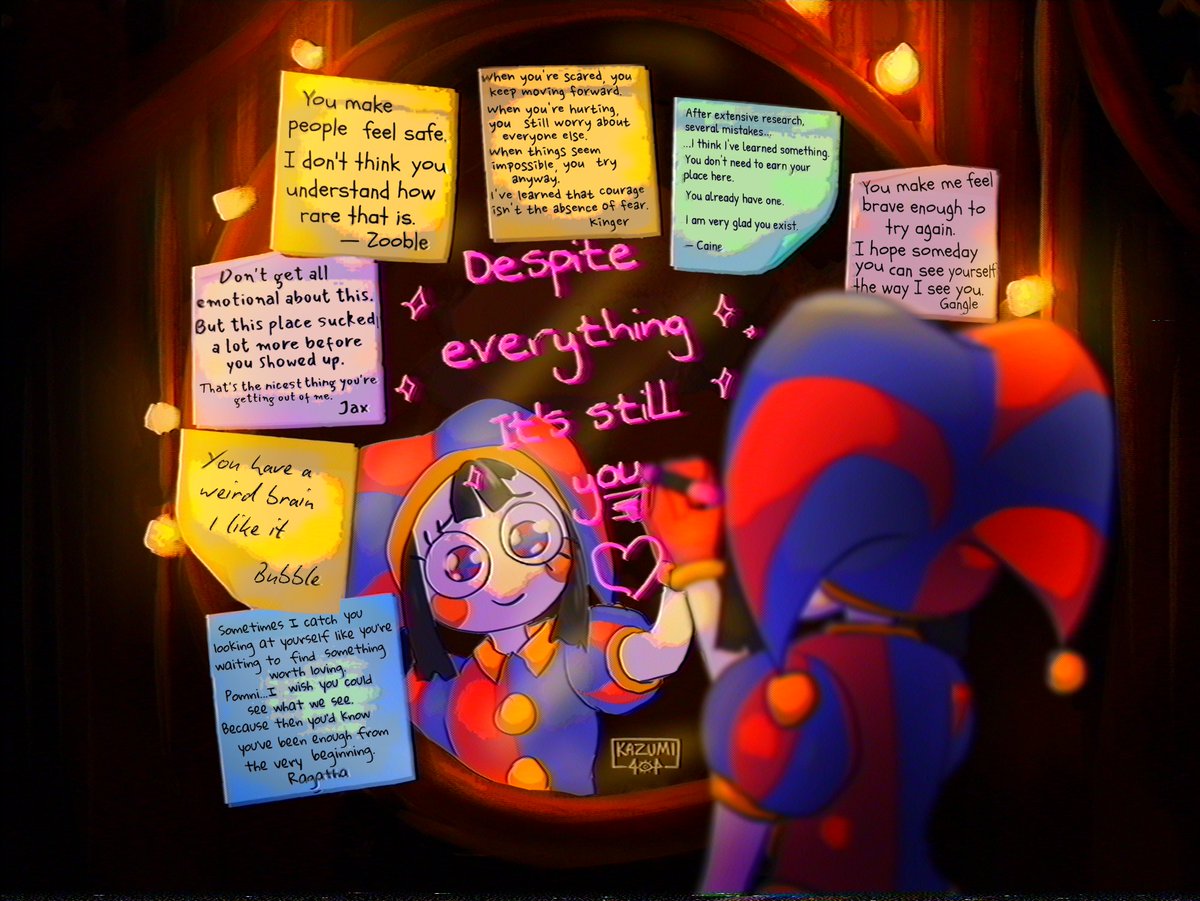 You make
people feel safe.
I don't think you
understand how
rare that is.
— Zooble
When you're scared, you
keep moving forward.
When you're hurting,
you still worry about
everyone else.
When things seem
impossible, you try
anyway.
I've learned that courage
isn't the absence of fear.
Kinger
After extensive research,
several mistakes...
...I think I've learned something.
You don't need to earn your
place here.
You already have one.
I am very glad you exist.
— Caine
You make me feel
brave enough to
try again.
I hope someday
you can see yourself
the way I see you.
Gangle
Don't get all
emotional about this.
But this place sucked
a lot more before
you showed up.
That's the nicest thing you're
getting out of me.
Jax
Despite
everything
It's still
you
You have a
weird brain
I like it
Bubble
Sometimes I catch you
looking at yourself like you're
waiting to find something
worth loving.
Pomni...I wish you could
see what we see.
Because then you'd know
you've been enough from
the very beginning.
Ragatha
KAZUMI
404